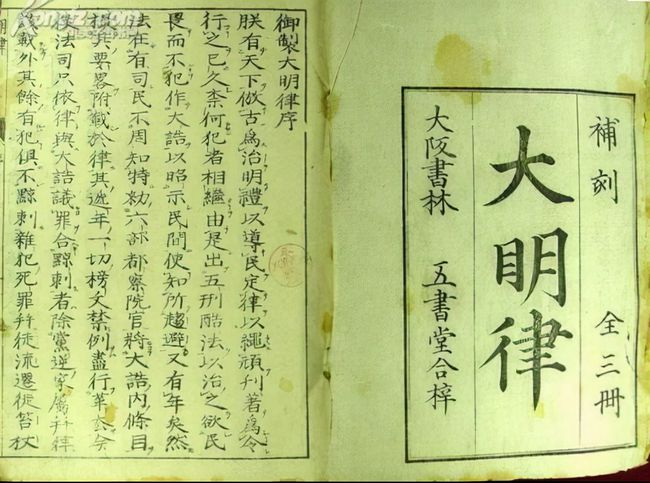 補刻 全三冊
大明律
大阪書林 五書堂合梓
御製大明律序
朕有天下倣古爲治明禮以導民定律以繩頑刋著爲令
行之已久柰何犯者相繼由是出五刑酷法以治之欲民
畏而不犯作大誥以昭示民間使知所趨避又有年矣然
法在有司民不周知特勑六部都察院官將大誥内條目
撮其要畧附載於律其逓年一切榜文禁例盡行革去今
後法司只依律與大誥議罪合黥刺者除黨逆家属幷律
該載外其餘有犯俱不黥刺雜犯死罪幷徒流遷徙笞杖